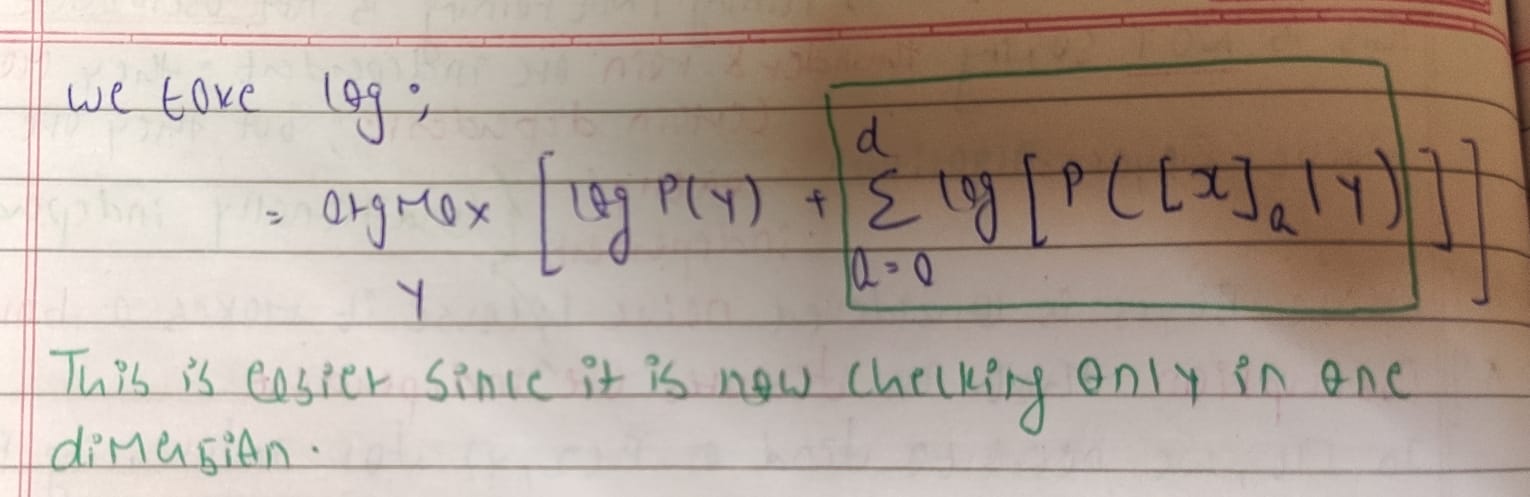 we take log;
= argmax_y [ log P(y) + Σ_{a=0}^{d} log [ P([x]_a | y) ] ]
This is easier since it is now checking only in one
dimension.